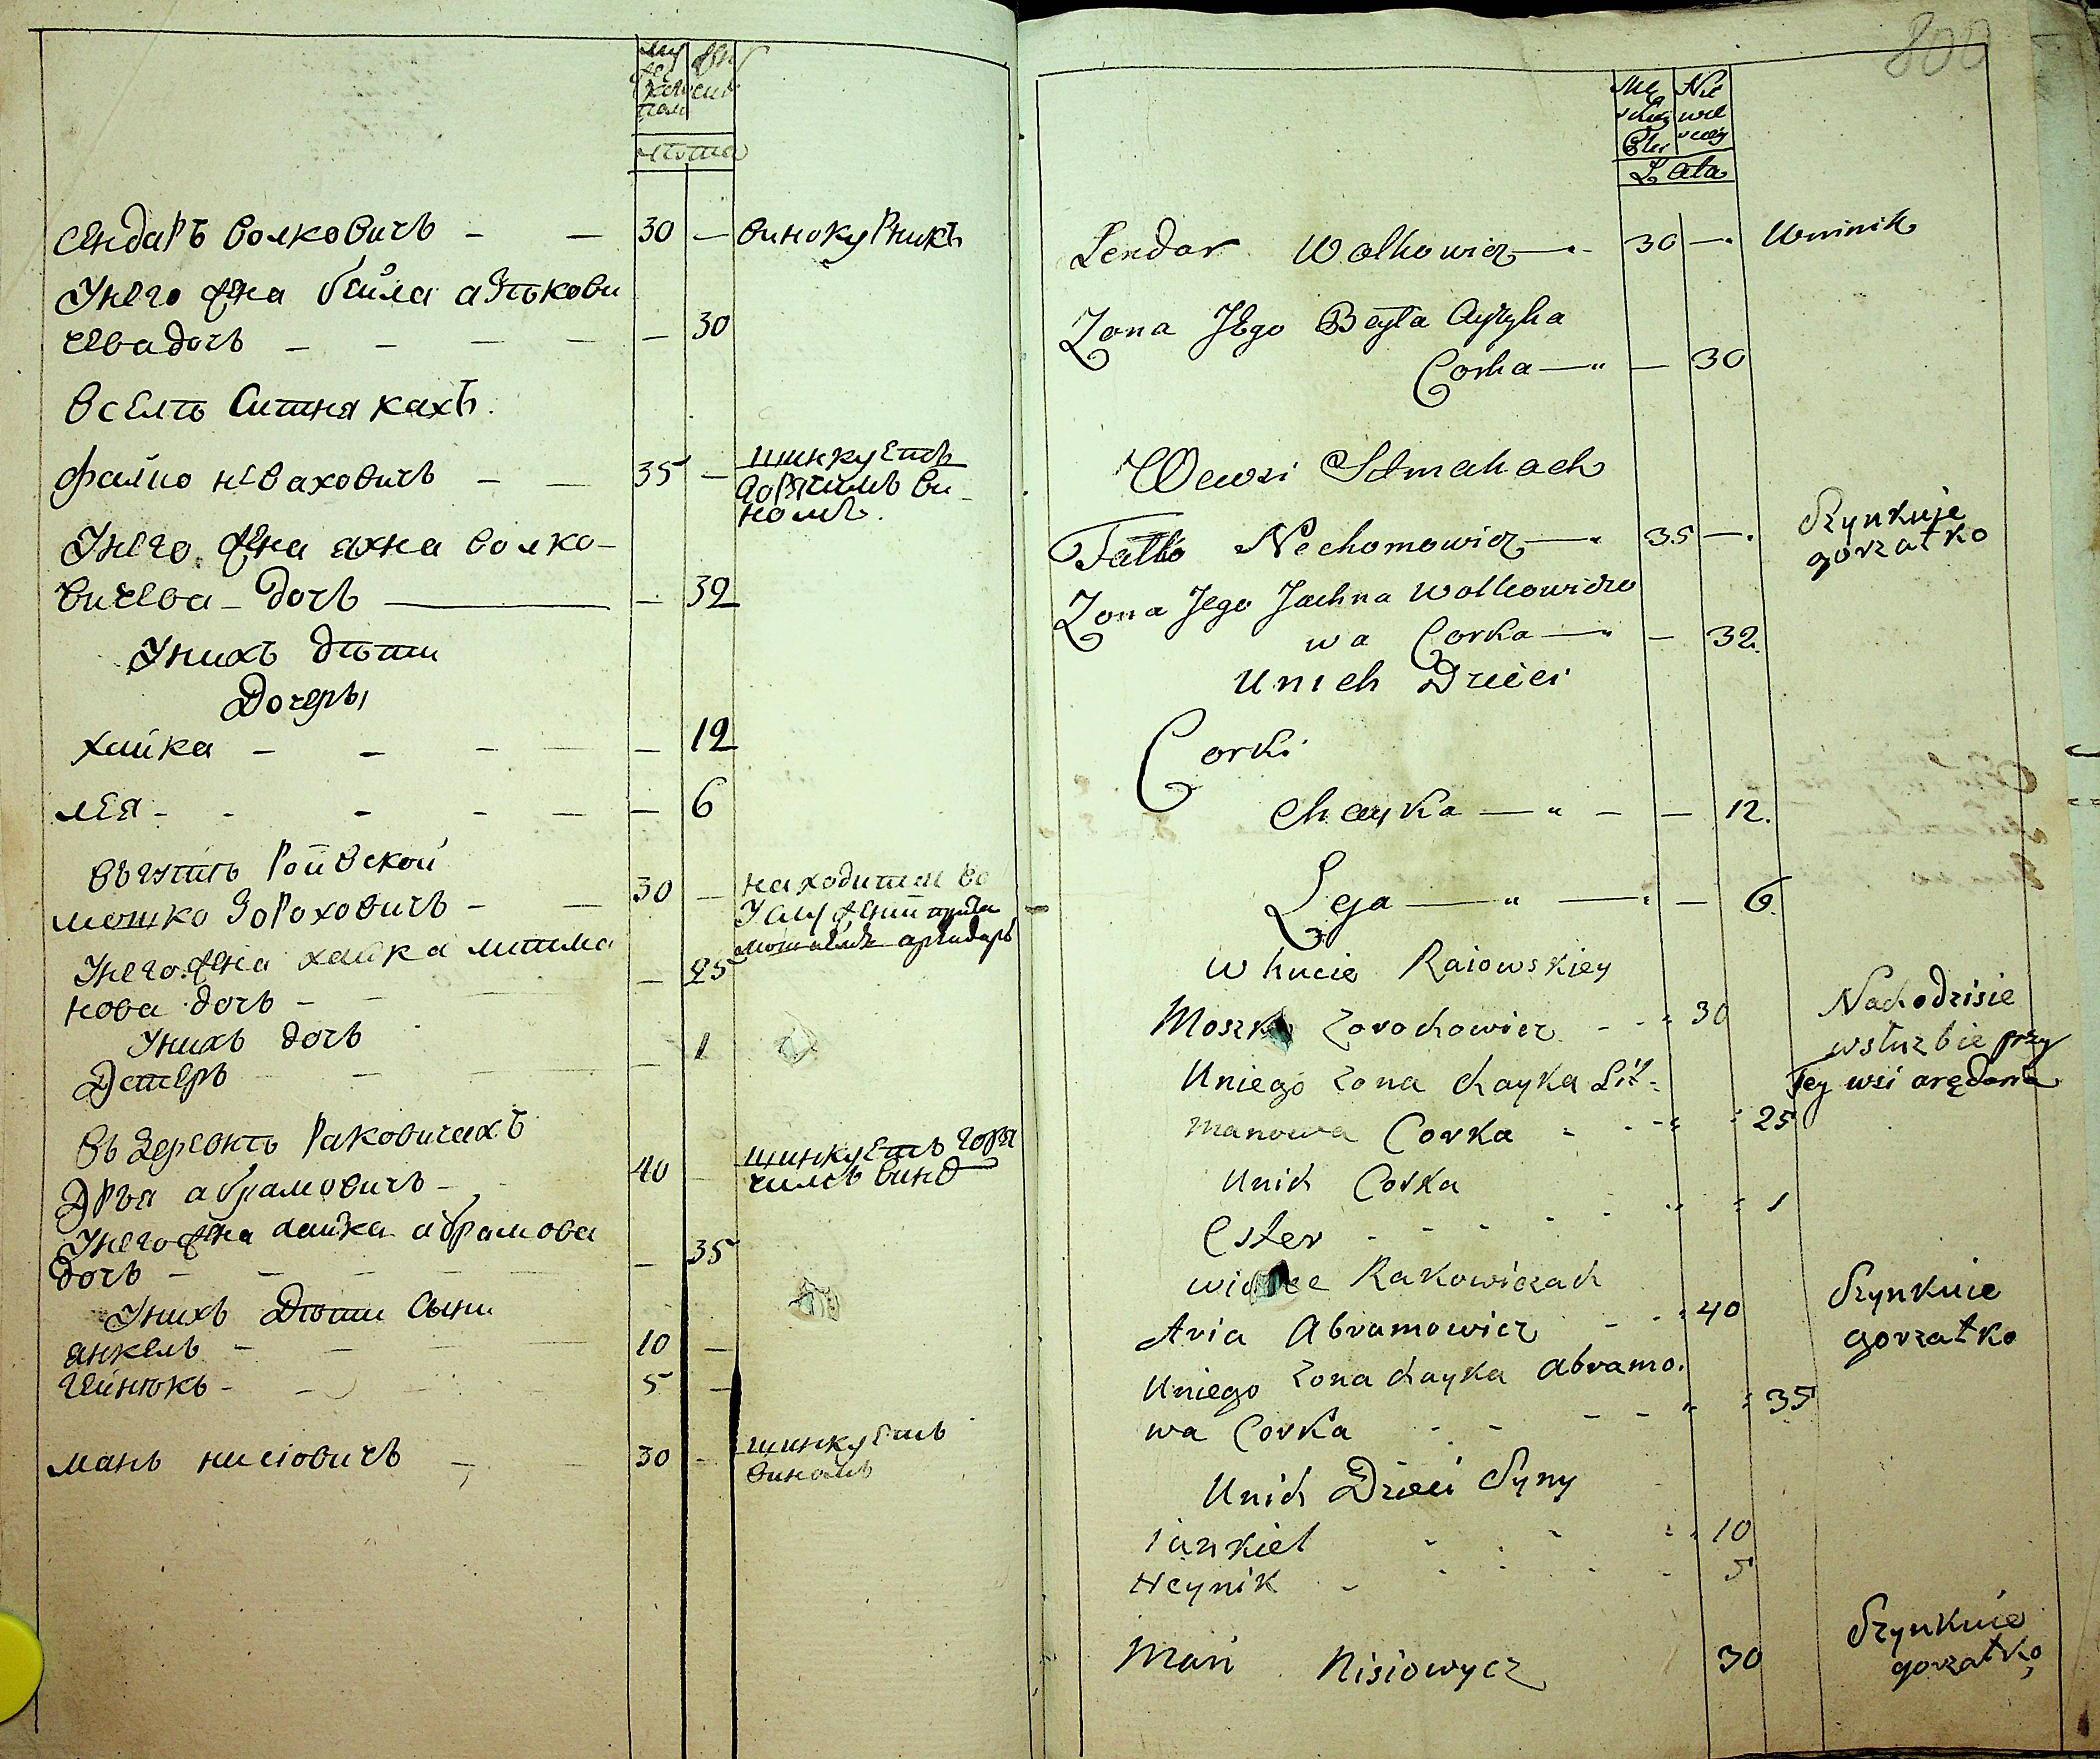 лѣта
сендаръ волковичъ - - 30 - винокурникъ
Унего жена бейла аѣзкови
чева дочь - - - - - 30
Вселѣ Ситнякахъ.
файко неваховичъ - - 35 - шинкуетъ
горячимъ ви-
номъ.
Унего жена яхна волко-
вичева - дочь - - 32
Унихъ дѣти
Дочеры
хайка - - - - - 12
лея - - - - - - 6
Мошко Зороховичъ - - 30 - находитси во
Унего жена хайка литма
нова дочь - - - 25
Унихъ дочь
Естеръ - - - - 1
Въ деревнѣ Раковичахъ
Арья абрамовичъ - - 40 - шинкуетъ горя
чимъ вино
Унего жена хайка абрамова
дочь - - - - - - 35
Унихъ Дѣти Сыни
янкель - - - - 10 -
гейнюкъ - - - - 5 -
мань нисіовичъ - - 30 - шинкуетъ
виномъ
800
Mę Nie
skiey wie
Płci sciey
Lata
Lendar Wolkowicz — 30 — Winnik
Zona Jego Beyła Ayzyka
Corka — — 30
Wewsi Sitniakach
Falko Nechomowicz — 35 — Szynkuje
gorzałko
Zona Jego Jachna Wolkowiczo
wa Corka — — 32.
Unich Dzieci
Corki
Chayka — — — 12.
Leja — — — 6.
w hucie Raiowskiey
Moszko Zorochowicz - - 30 Nachodzisie
wsłuzbie przy
Tey wsi arędarza
Uniego zona Chayka Lit-
manowa Corka - - - 25
Unich Corka
Ester - - - - - 1
Rakowiczach
Aria Abramowicz - - 40 Szynkuie
gorzałko
Uniego zona Chayka Abramo.
wa Corka - - - - 35
Unich Dzieci Syny
iankiel - - - 10
Heynik - - - - 5
Mań Nisiowycz 30 Szynkuie
gorzałkę